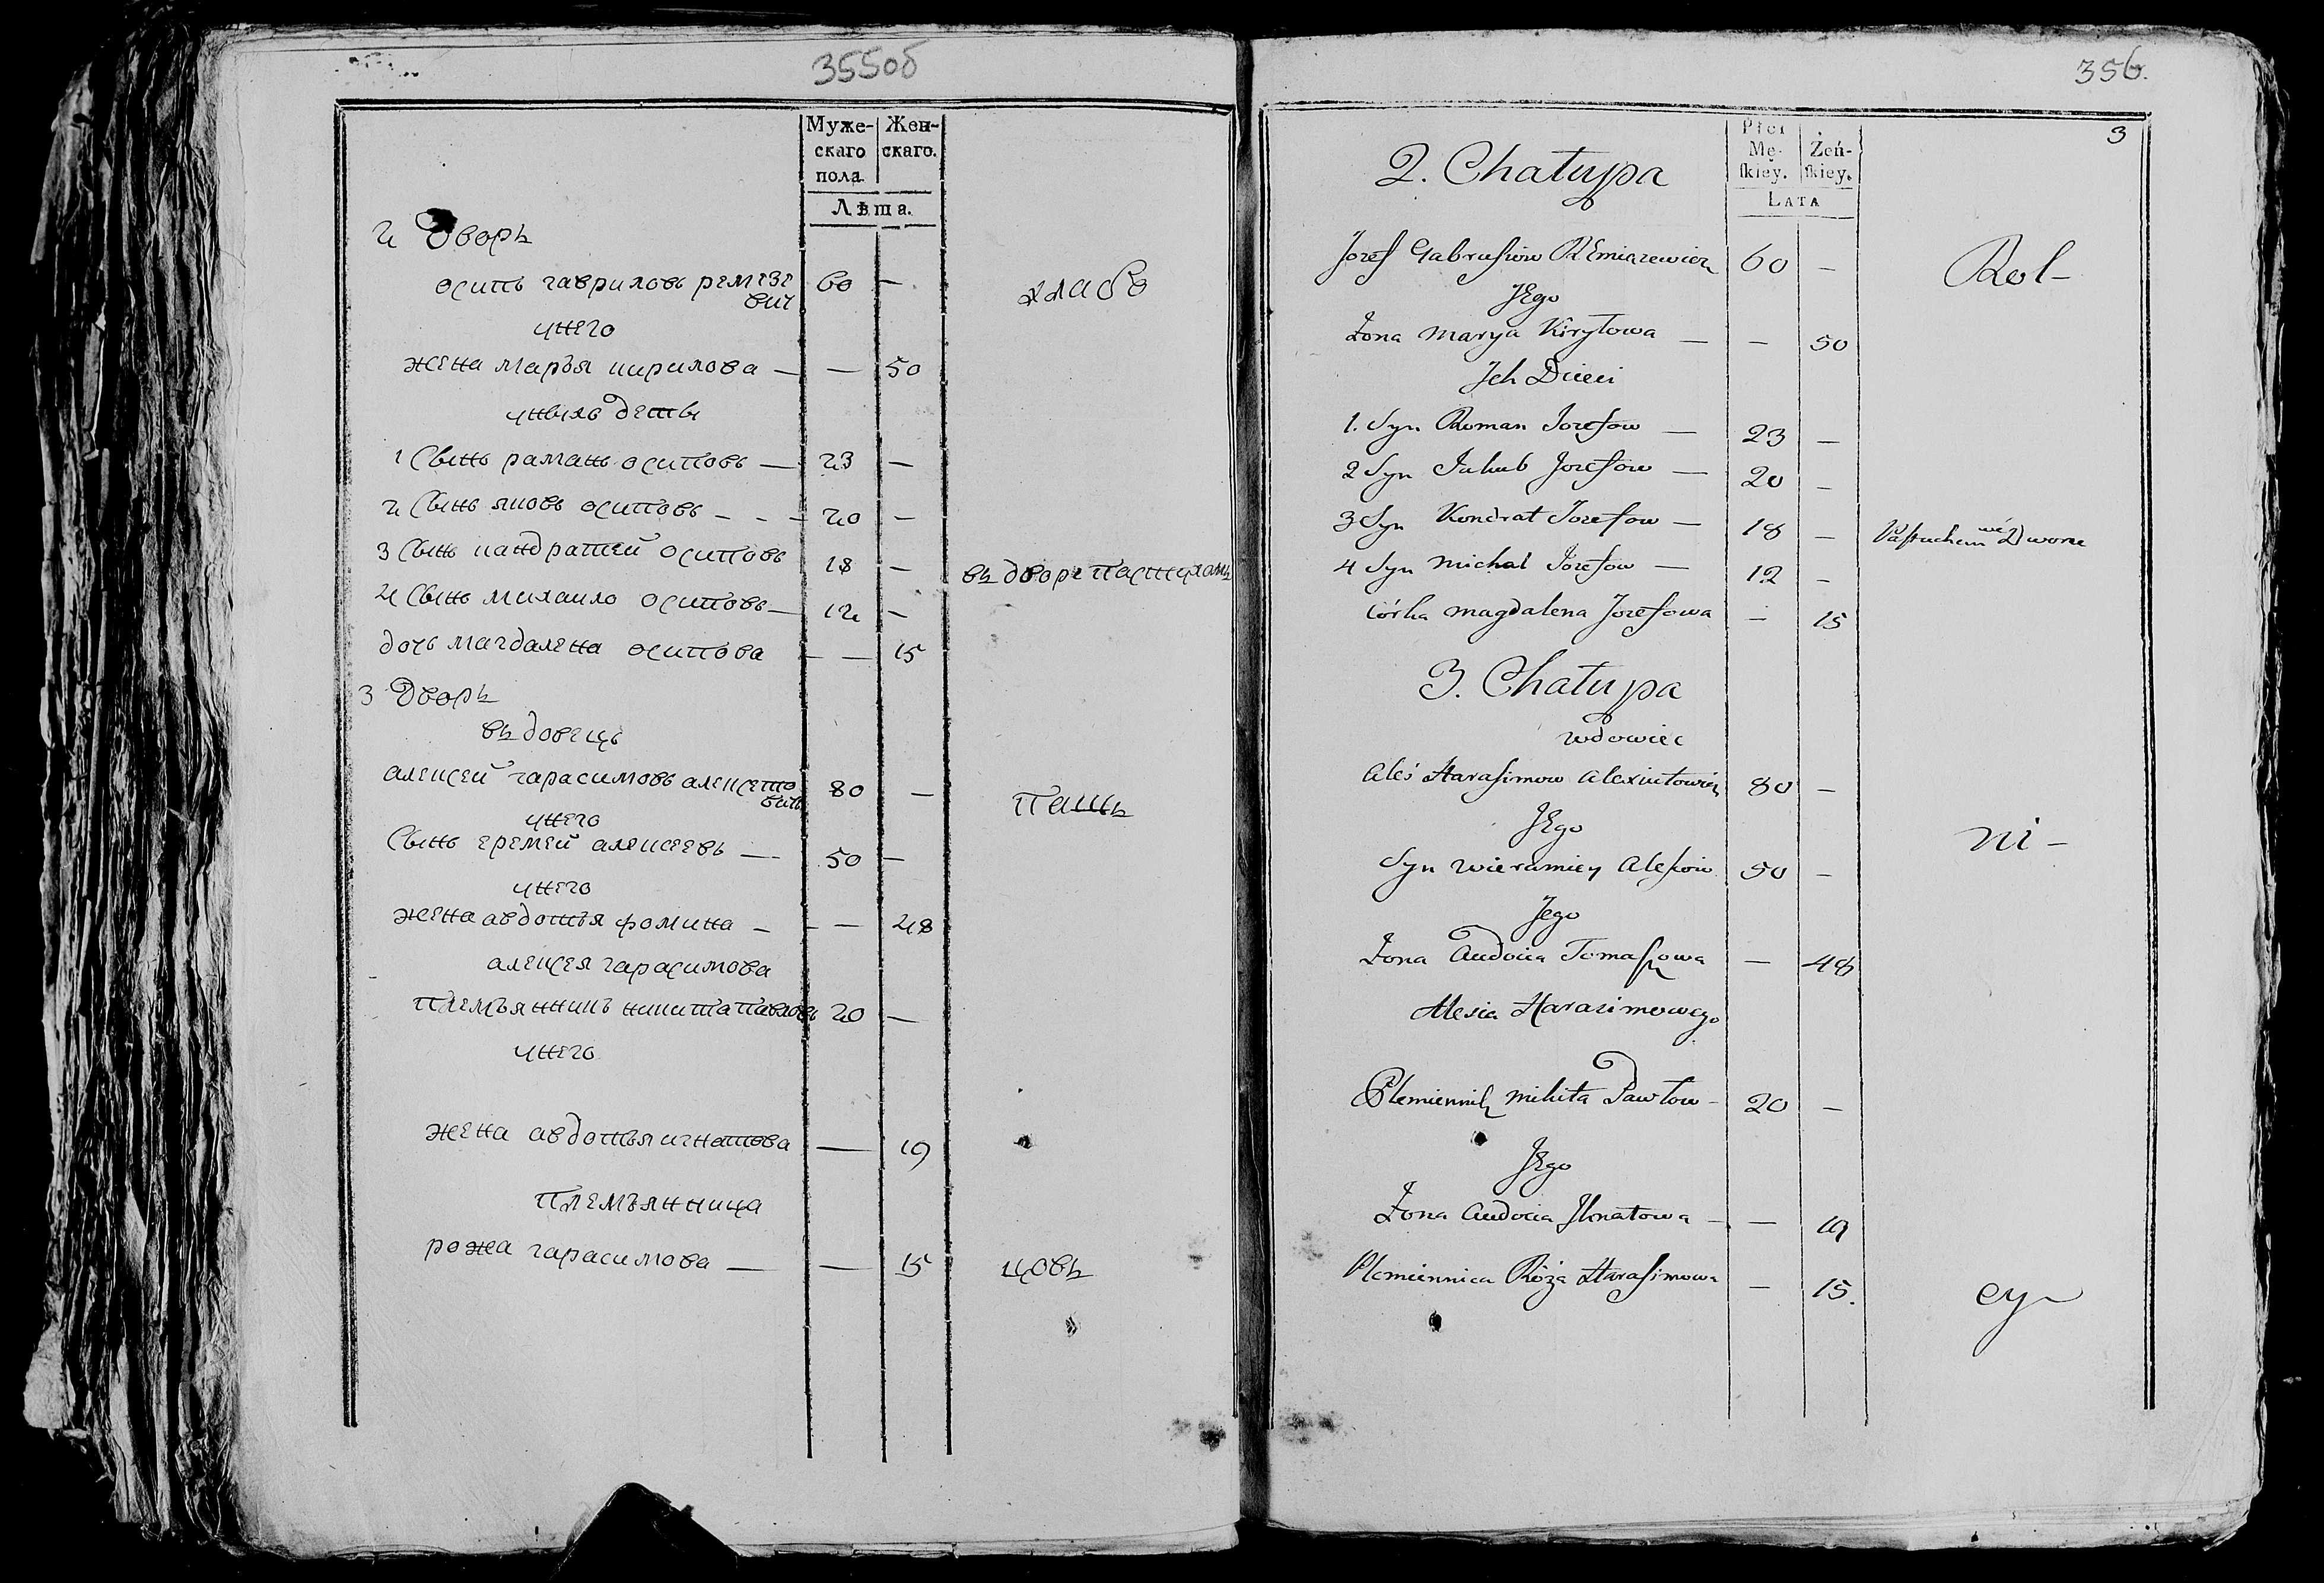 355об
Муже-
скаго
пола.
Жен-
скаго.
Лѣта.
2 Дворъ
осипъ гавриловъ ремезе
вич
60 —
хлабо
унего
жена марья кирилова — — 50
унихъ дети
1 Сынъ раманъ осиповъ — 23 —
2 Сынъ яковъ осиповъ - - - 20 —
3 Сынъ кандратей осиповъ 18 — въ дворе пастухомъ
4 Сынъ михаило осиповъ — 12 —
дочь магдалена осипова — — 15
3 Дворъ
въдовецъ
алексей гарасимовъ алексето
вичь
80 —
пашъ
унего
Сынъ еремей алексеевъ — 50 —
унего
жена авдотья фомина — - — 48
алексея гарасимова
племъянникъ никита павловъ 20 —
унего
жена авдотья игнатова — 19
племъянница
рожа гарасимова — — 15 цовъ
356.
3
2. Chałupa
Płci
Mę-
skiey.
Żeń-
skiey.
Lata
Jozef Gabrusiow REmiazewicz 60 — Rol-
JEgo
Żona Marya Kiryłowa — — 50
Jch Dzieci
1. Syn Roman Jozefow — 23 —
2 Syn Jakub Jozefow — 20 —
3 Syn Kondrat Jozefow — 18 — Pastuchem we Dworze
4 Syn Michał Jozefow — 12 —
Córka Magdalena Jozefowa — 15
3. Chałupa
wdowiec
Aleś Harasimow Alexiutowicz 80 —
JEgo
ni-
Syn Wieramiey Alesiow 50 —
Jego
Żona Audocia Tomaszowa — 48
Alesia Harasimowego
Plemiennik Mikita Pawłow - 20 —
JEgo
Żona Audocia Jhnatowa - — 19
Plemiennica Róża Harasimowa — 15. cy